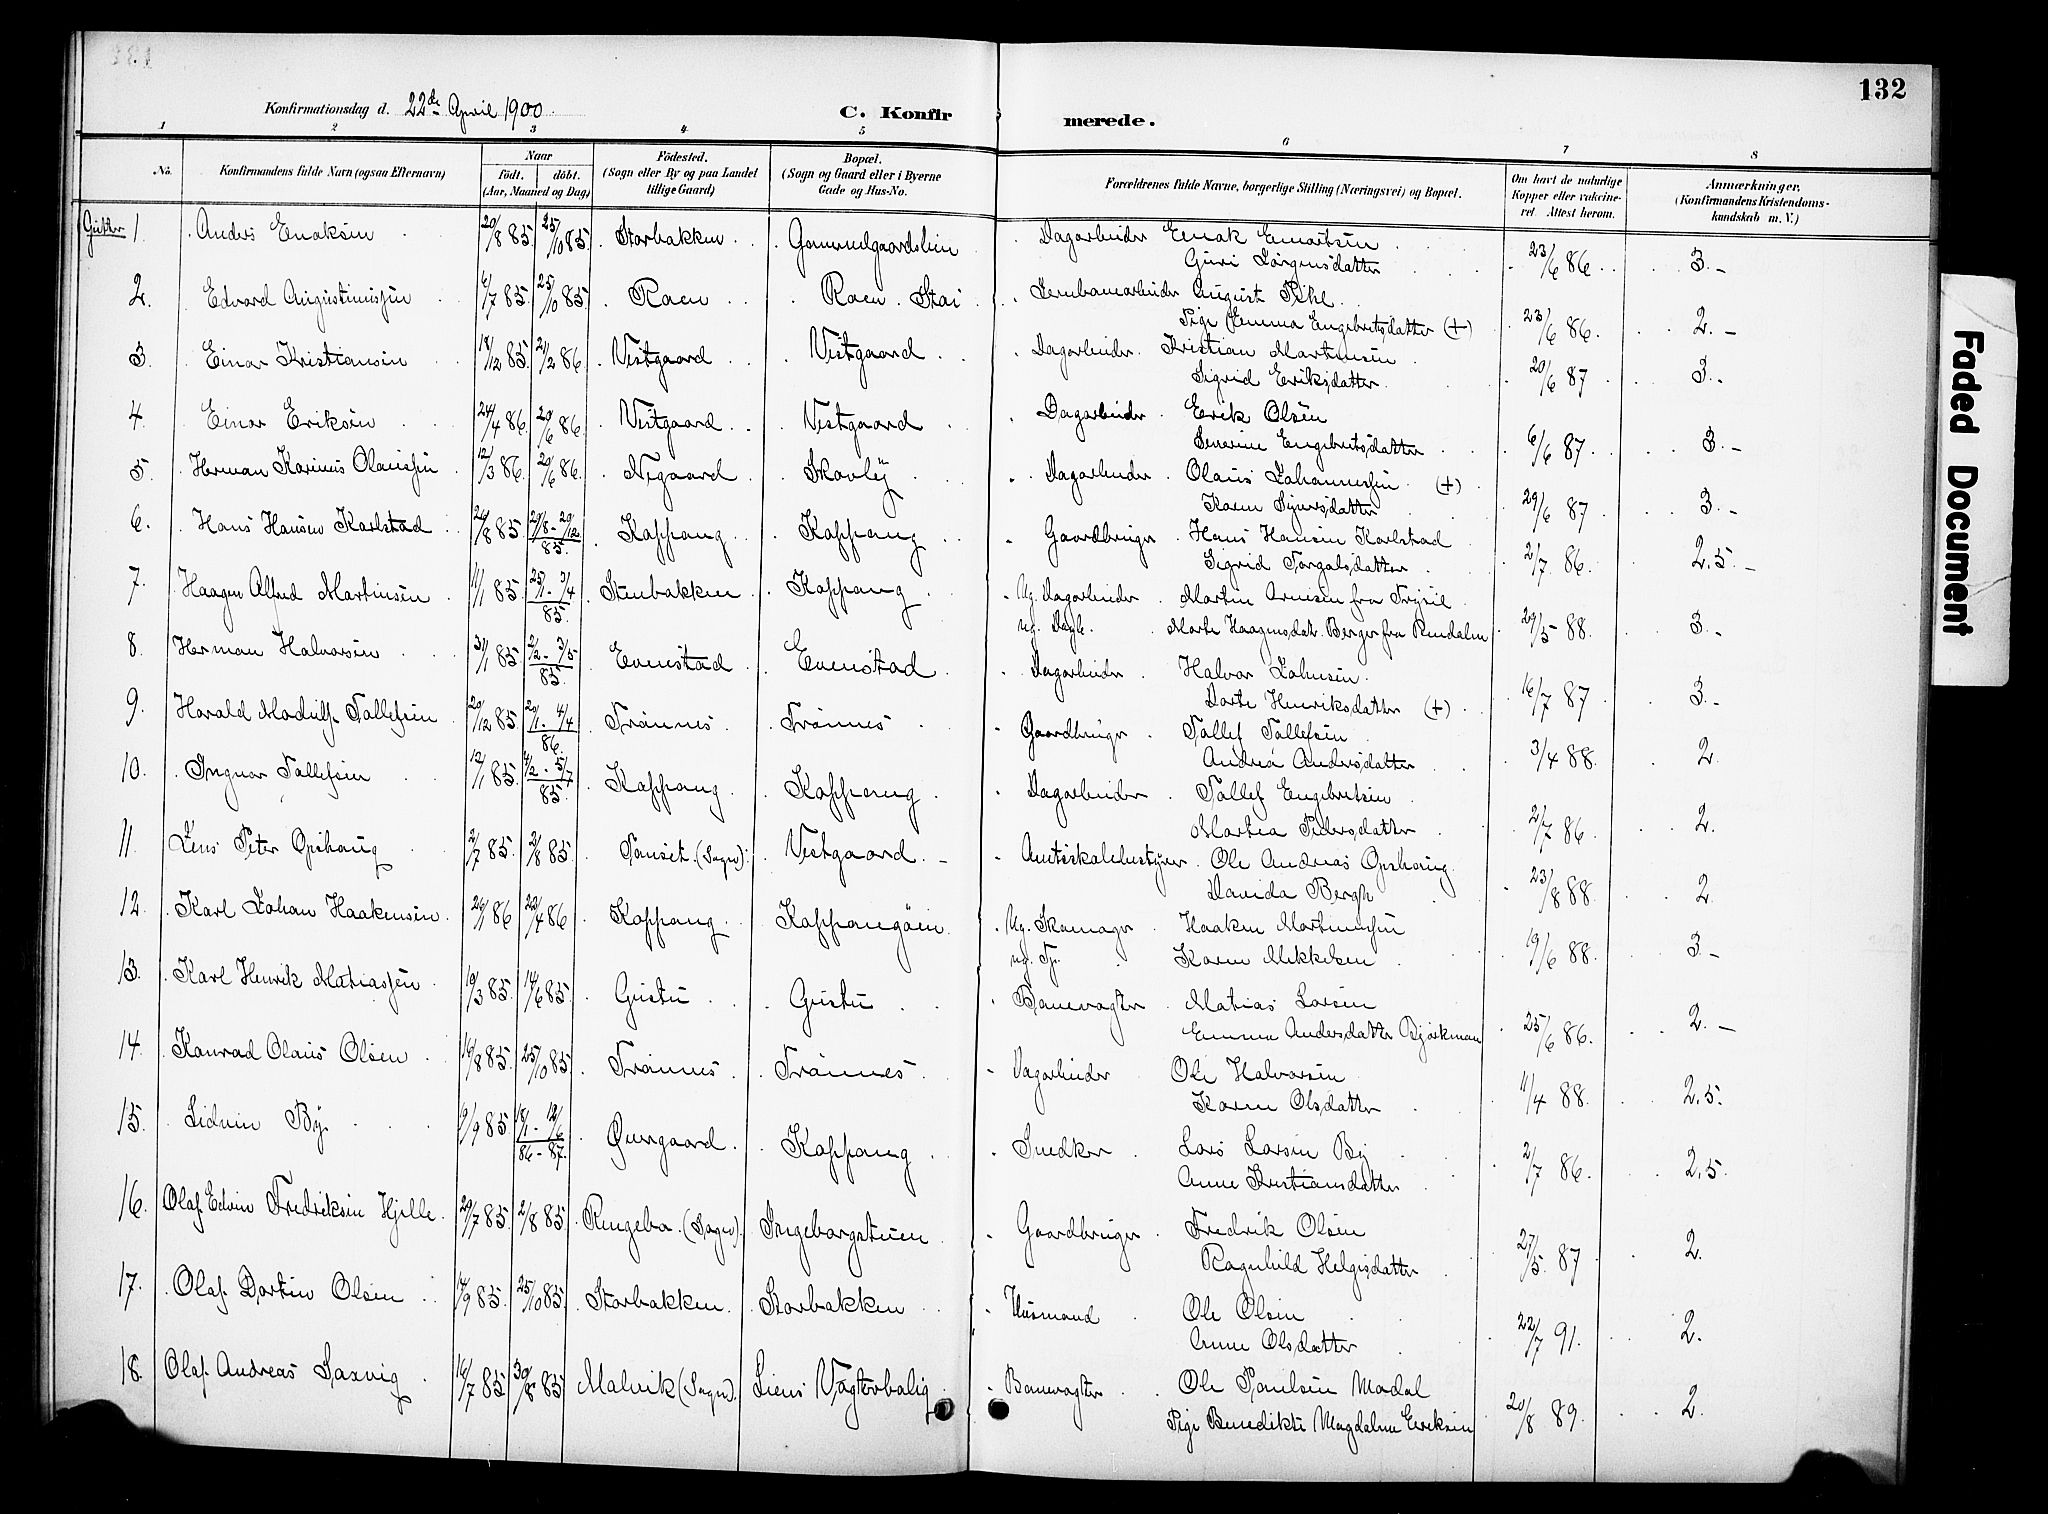 132
Konfirmationsdag d. 22de April 1900
C. Konfirmerede.
1 2 3 4 5 6 7 8
No. Konfirmandens fulde Navn (ogsaa Efternavn) Naar født. døbt. (Aar, Maaned og Dag) Fødested. (Sogn eller By og paa Landet tillige Gaard) Bopæl. (Sogn og Gaard eller i Byerne Gade og Hus-No. Forældrenes fulde Navne, borgerlige Stilling (Næringsvei) og Bopæl. Om havt de naturlige Kopper eller vakcineret. Attest herom. Anmærkninger. (Konfirmandens Kristendomskundskab m. V.)
Gutter 1. Anders Enoksen 20/8 85. 25/10 85. Storbakken Gammelgaardslien Dagarbeider Enok Enertsen 23/6 86. 3.-
Guri Jørgensdatter
2. Edvard Augustinussen 6/7 85. 25/10 85. Roen Roen Stai Jernbanearbeider August Pihl 23/6 86. 2.-
Pige Emma Engebretsdatter (+)
3. Einar Kristiansen 18/12 85. 21/2 86 Vestgaard Vestgaard Dagarbeider Kristian Martinsen 20/6 87 3.-
Sigrid Eriksdatter
4. Einar Eriksen 24/4 86. 20/6 86. Vestgaard Vestgaard Dagarbeider Erik Olsen 6/6 87. 3.-
Severine Engebretsdatter
5. Herman Karinus Olaussen 12/3 86. 20/6 86. Negaard Skovly Dagarbeider Olaus Johannessen (+) 29/6 87 3.-
Karen Syversdatter
6. Hans Hansen Karlstad 24/8 85. 29/8 - 20/12 85. Koppang Koppang Gaardbruger Hans Hansen Karlstad 2/7 86. 2,5.-
Sigrid Torgalsdatter
7. Haagen Alfred Martinsen 11/1 85. 25/1 - 3/4 85. Stenbakken Koppang Ug. Dagarbeider Martin Arnesen fra Trysil 29/5 88. 3.-
ug. Dagl. Marte Haagensdat. Berger fra Rendalen
8. Herman Halvorsen 31/1 85. 2/2 - 3/5 85. Evenstad Evenstad Dagarbeider Halvor Johnsen 16/7 87 3.-
Dorte Henriksdatter (+)
9. Harald Modulf Tollefsen 20/12 85. 29/1 - 4/4 86. Trønnes Trønnes Gaardbruger Tollef Tollefsen 3/4 88. 2.
Andrea Andersdatter
10. Ingvar Tollefsen 12/1 85. 4/2 - 5/7 85. Koppang Koppang Dagarbeider Tollef Engebretsen 2/7 86. 2.
Martea Pedersdatter
11. Jens Peter Opshaug 2/7 85. 2/8 85. Tønset (Sogn). Vestgaard Amtsskolebestyrer Ole Andreas Opshaug 23/8 88. 2.
Davida Bergh
12. Karl Johan Haakensen 26/1 86 23/4 86 Koppang Koppangøien Ug. Skomager Haaken Martinussen 19/6 88. 3.-
ug. Tj. Karen Mikkelsen
13. Karl Henrik Matiassen 19/3 85. 14/6 85. Gustu Gustu Banevagter Matias Larsen 25/6 86. 2.-
Emma Andersdatter Bjørkman
14. Konrad Olaus Olsen 16/8 85. 25/10 85. Trønnes Trønnes Dagarbeider Ole Halvorsen 11/4 88. 2,5.
Karen Olsdatter
15. Lidvin By 9/9 85. 18/1 - 12/6 86-87. Øvergaard Koppang Snedker Lars Larsen By 2/7 86. 2,5
Anne Kristiansdatter
16. Olaf Edvin Fredriksen Hjelle 29/7 85. 2/8 85. Ringebo (Sogn). Ingeborgstuen Gaardbruger Fredrik Olsen 27/5 87 2.
Ragnhild Helgesdatter
17. Olaf Dortin Olsen 14/9 85. 25/10 85. Storbakken Storbakken Husmand Ole Olsen 22/7 91. 2.
Anne Olsdatter
18. Olaf Andreas Saxvig 16/7 85. 30/8 85. Malvik (Sogn). Liens Vogterbolig Banevagter Ole Paulsen Modal 20/8 89. 2.
Pige Benedikte Magdalene Eriksen
Faded Document